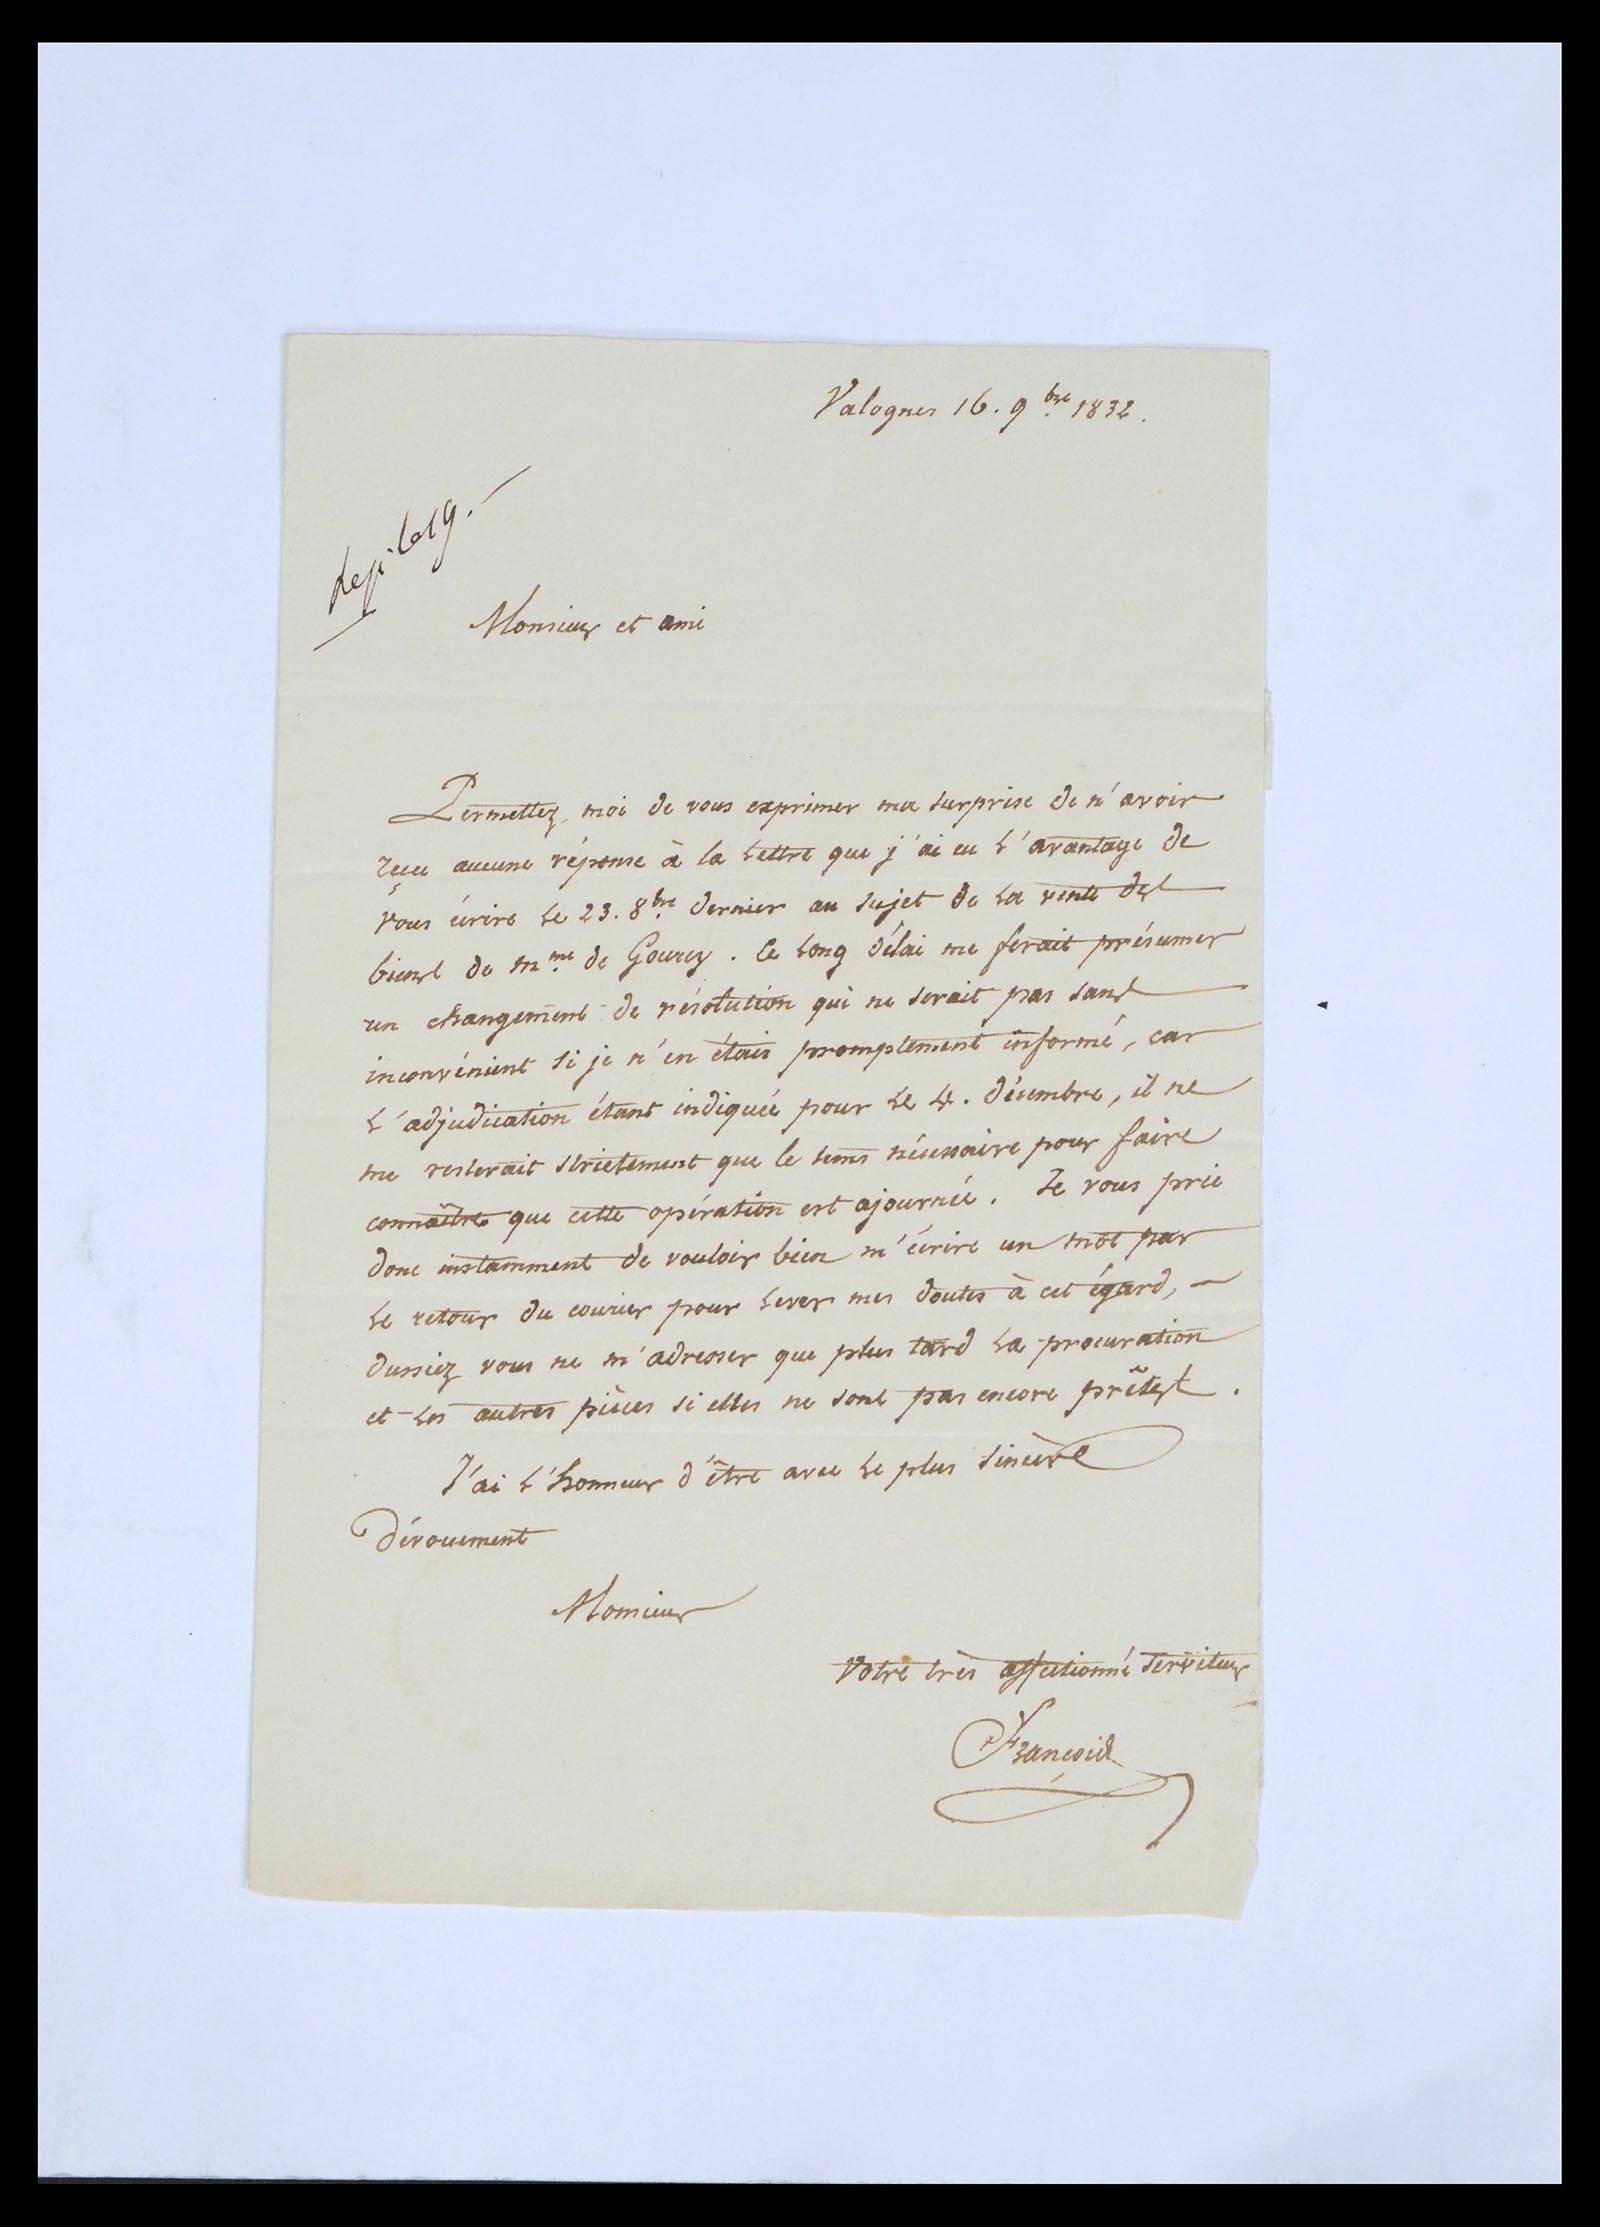 Valognes 16. 9bre 1832.
Rep. le 19.
Monsieur et ami
Permettez moi de vous exprimer ma surprise de n'avoir
reçu aucune réponse à la lettre que j'ai eu l'avantage de
vous écrire le 23. 8bre dernier au sujet de la vente des
biens de Mme de Gourcy. Ce long délai me ferait présumer
un changement de résolution qui ne serait pas sans
inconvénient si je n'en étais promptement informé, car
l'adjudication étant indiquée pour le 4. décembre, il ne
me resterait strictement que le tems nécessaire pour faire
connaître que cette opération est ajournée. Je vous prie
donc instamment de vouloir bien m'écrire un mot par
le retour du courier pour lever mes doutes à cet égard, —
dussiez vous ne m'adresser que plus tard la procuration
et les autres pièces si elles ne sont pas encore prêtes.
J'ai l'honneur d'être avec le plus sincère
Dévouement
Monsieur
Votre très affectionné serviteur
François